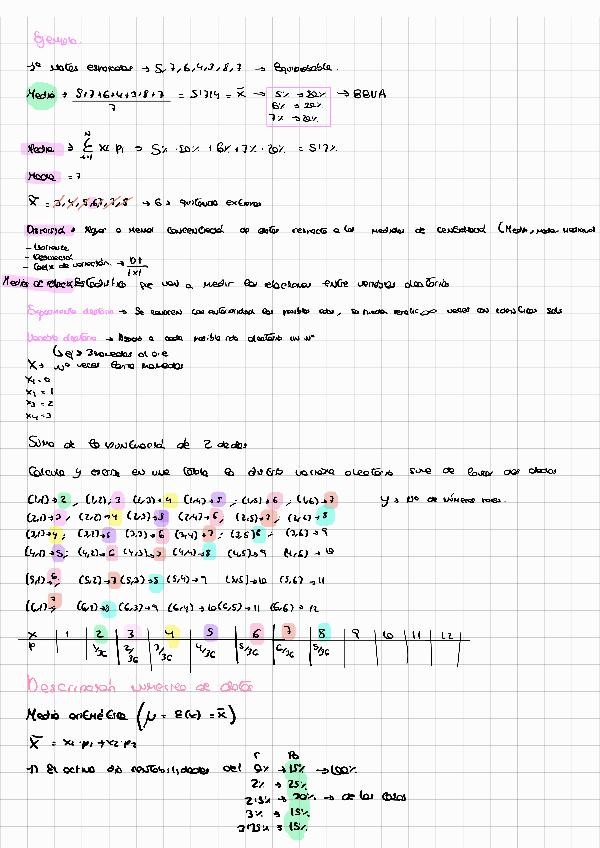 Ejemplo.
→ 5, 7, 6, 4, 3, 8, 7 → Equiprobable.
Media → 5+7+6+4+3+8+7 / 7 = 5'714 = x̄ → 5% → 20% → BBVA
6% → 20%
7% → 20%
Media → Σ xi pi → 5% · 20% + 6% + 7% · 20% = 5'17%
Moda = 7
x̃ = 3, 4, 5, 6, 7, 7, 8 → 6 → quitando extremos
Dispersión → Mayor o menor concentración de datos respecto a las medidas de centralidad (Media, moda, mediana)
- Varianza
- Desviación
- Coefic de variación → DT / |x|
Medidas de relación Estadístico que van a medir las relaciones entre variables aleatorias
Experimento aleatorio → Se conocen con anterioridad los posibles
Variable aleatoria → Asocia a cada posible rdo aleatorio un nº
ej → 3 monedas al aire
X → nº veces
x1 = 0
x2 = 1
x3 = 2
x4 = 3
Suma de la puntuación de 2 dados
Calcula y en una tabla la variable aleatoria suma de lanzar dos dados
(1,1) → 2, (1,2) → 3 (1,3) → 4 (1,4) → 5, (1,5) → 6, (1,6) → 7
(2,1) → 3, (2,2) → 4 (2,3) → 5 (2,4) → 6, (2,5) → 7, (2,6) → 8
(3,1) → 4, (3,2) → 5 (3,3) → 6 (3,4) → 7 (3,5) 8, (3,6) → 9
(4,1) → 5, (4,2) → 6 (4,3) → 7 (4,4) → 8 (4,5) → 9 (4,6) → 10
(5,1) → 6, (5,2) → 7 (5,3) → 8 (5,4) → 9 (5,5) → 10 (5,6) → 11
(6,1) → 7 (6,2) → 8 (6,3) → 9 (6,4) → 10 (6,5) → 11 (6,6) → 12
x 1 2 3 4 5 6 7 8 9 10 11 12
P 1/36 2/36 3/36 4/36 5/36 6/36 5/36
Descripción numérica de datos
Media aritmética (μ = E(x) = x̄)
x̄ = x1 · p1 + x2 · p2
1) El activo dio rentabilidades del
0% → 15% → 100%
2% → 25%
2'5% → 30% → de los casos
3% → 15%
3'75% → 15%